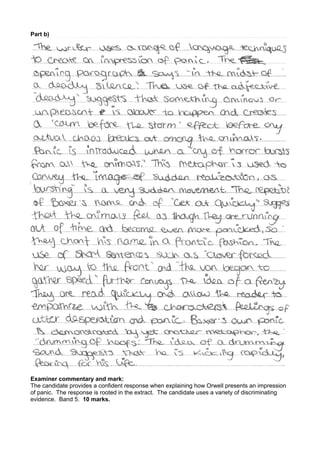 Part b)
The writer uses a range of language techniques
to create an impression of panic. The
opening paragraph says "in the midst of
a deadly silence". The use of the adjective
"deadly" suggests that something ominous or
unpleasant is about to happen and creates
a 'calm before the storm' effect before any
actual chaos breaks out among the animals.
Panic is introduced when a "cry of horror bursts
from all the animals." This metaphor is used to
convey the image of sudden realisation, as
'bursting' is a very sudden movement. The repetition
of Boxer's name and of "Get out Quickly" suggest
that the animals feel as though they are running
out of time and become even more panicked, so
they chant his name in a frantic fashion. The
use of short sentences such as "Clover forced
her way to the front" and "the van began to
gather speed" further conveys the idea of a frenzy
They are read quickly and allow the reader to
empathize with the characters feelings of
utter desperation and panic. Boxer's own panic
is demonstrated by yet another metaphor, the
"drumming of hoofs". The idea of a drumming
sound suggests that he is kicking rapidly,
fearing for his life.
Examiner commentary and mark:
The candidate provides a confident response when explaining how Orwell presents an impression
of panic. The response is rooted in the extract. The candidate uses a variety of discriminating
evidence. Band 5. 10 marks.